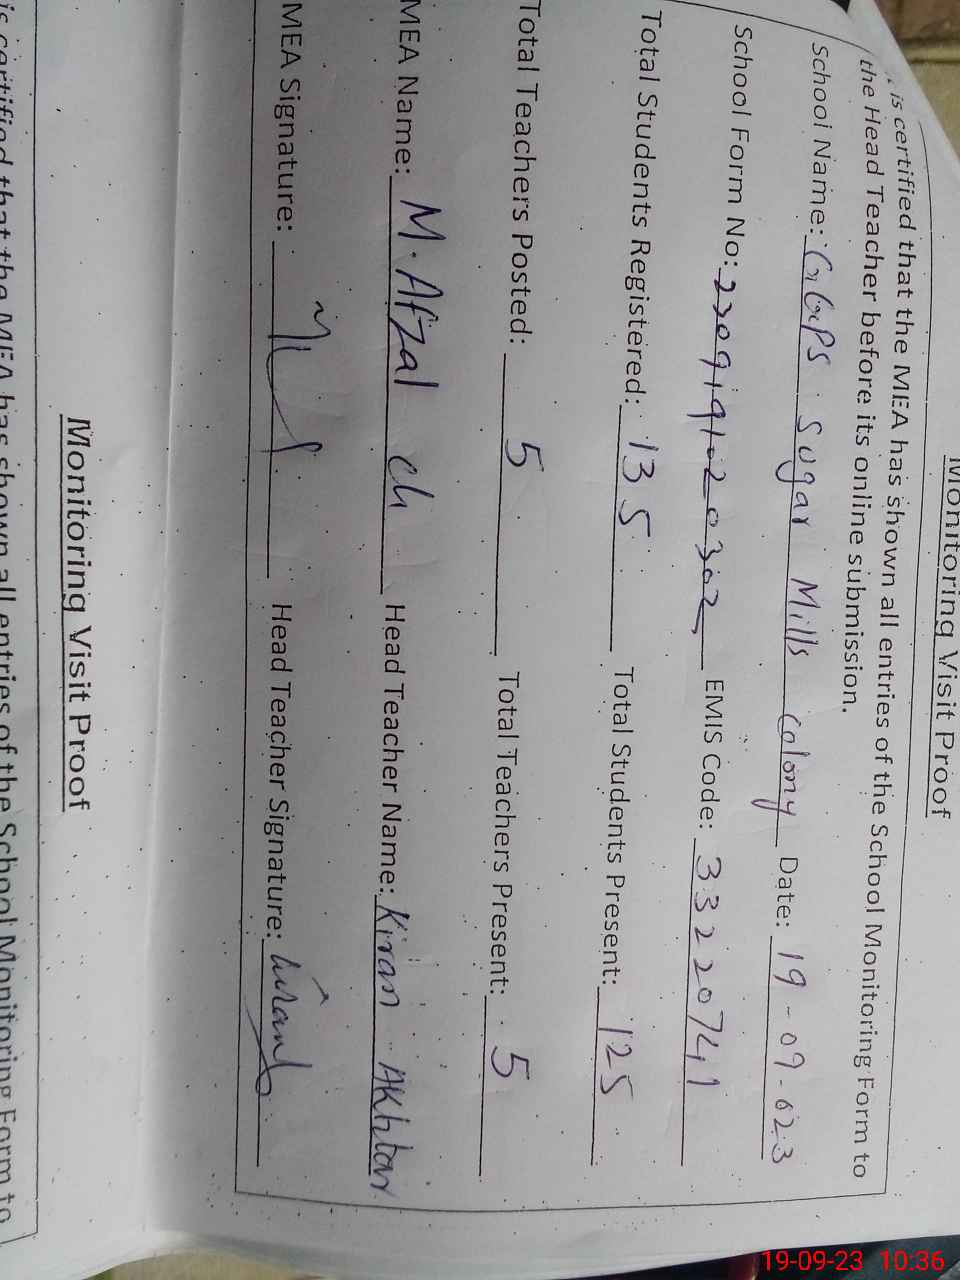 Monitoring Visit Proof
is certified that the MEA has shown all entries of the School Monitoring Form to
the Head Teacher before its online submission.
School Name: GGPS Sugar Mills Colony Date: 19-09-023
School Form No: 2309191020302 EMIS Code: 33220741
Total Students Registered: 135 Total Students Present: 125
Total Teachers Posted: 5 Total Teachers Present: 5
MEA Name: M. Afzal ch Head Teacher Name: Kiran Akhtar
MEA Signature: Head Teacher Signature:
Monitoring Visit Proof
is certified that the MEA has shown all entries of the School Monitoring Form to
19-09-23 10:36